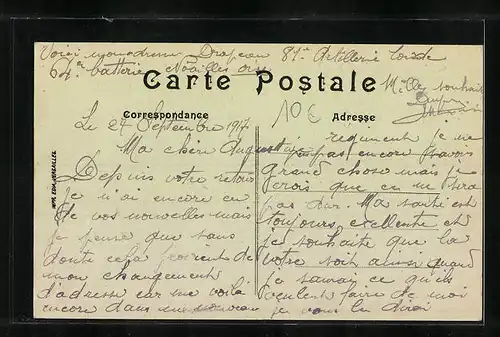 Voici mon adresse Drapeau 81e Artillerie Lourde
64e batterie Noailles Oise
Mille souhaits
Carte Postale
Correspondance
10€
Adresse
Le 27 Septembre 1917
Ma chère Augustine
Depuis votre retour
je n'ai encore eu
de vos nouvelles mais
je pense que sans
doute cela provient de
mon changement
d'adresse car me voilà
encore dans un nouveau
régiment je ne
pas encore
grand chose mais je
crois que ce ne sera
pas dur. Ma santé est
toujours exellente et
je souhaite que la
votre soit ainsi quand
je saurai ce qu'ils
veulent faire de moi
je vous le dirai
EDIT. VERSAILLES